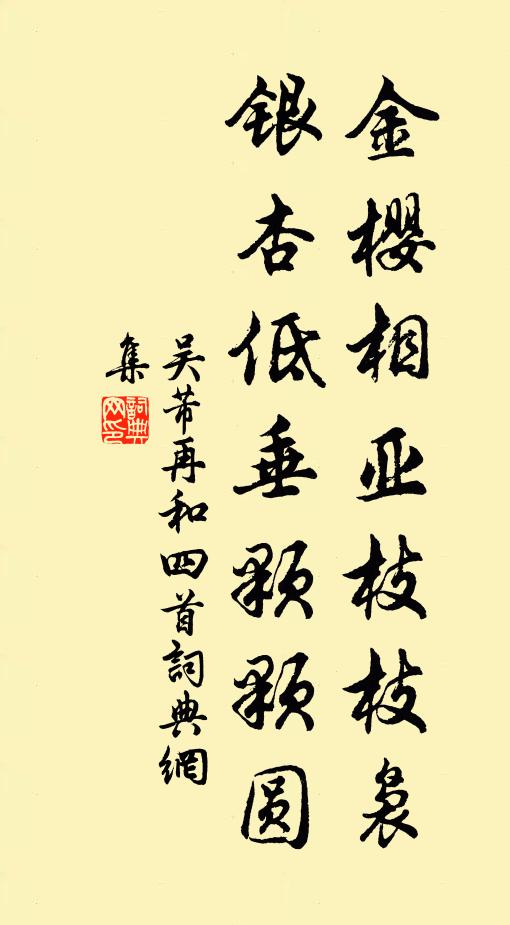 金櫻相亚枝枝袅
银杏低垂颗颗圆
吴芾再和四首詞典網
集
詞典網印